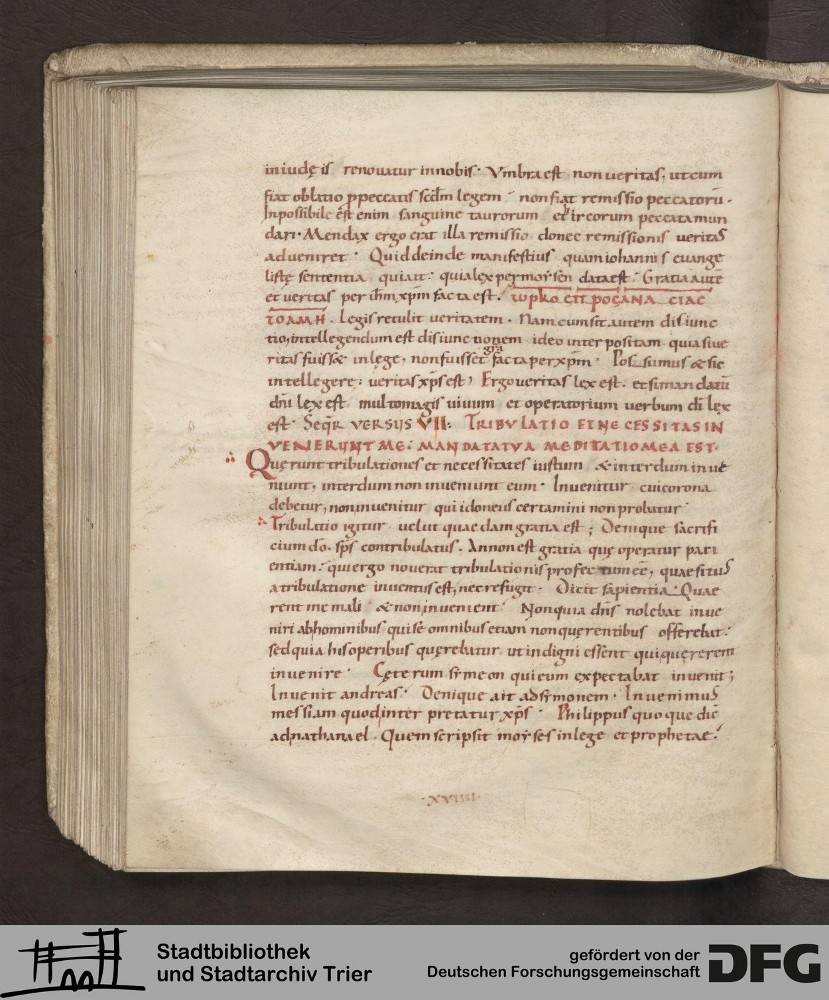 iniudęis renovatur innobis· Vmbra est non veritas, ut cum
fiat oblatio ppeccatis scdm legem non fiat remissio peccatorū·
Inpossibile ē est enim sanguine taurorum et ircorum peccata mun
dari· Mendax ergo erat illa remissio donec remissionis veritas
adveniret· Quid deinde manifestius quam iohannis evange
listę sententia quiait: quia lex per moysen data est· Gratia autē
et veritas per ihm xpm facta est.
Legis retulit veritatem· Nam cum sit autem disiunc
tio, intellegendum est disiunctionem ideo interpositam· quia sive
ritas fuisset inlege, non fuisset gra facta per xpm· Possumus & sic
intellegere: veritas xps est, Ergo veritas lex est· et si mandatū
dni lex est· multo magis vivum et operatorium verbum di lex
est· Seqr VERSUS VII: TRIBVLATIO ET NECESSITAS IN
VENERUNT ME: MANDATA TVA MEDITATIO MEA EST·
Querunt tribulationes et necessitates iustum & interdum inve
niunt, interdum non inveniunt eum· Invenitur cui corona
debetur, non invenitur qui idoneus certamini non probatur
Tribulatio igitur velut quaedam gratia est; Denique sacrifi
cium do· sps contribulatus· An non est gratia quę operatur pati
entiam: qui ergo noverat tribulationis profectum eē, quaesitus
a tribulatione inventus est, nec refugit· Dicit sapientia· Quae
rent me mali & non invenient Non quia dns nolebat inve
niri abhominibus qui se omnibus etiam non quęrentibus offerebat:
sed quia his operibus quęrebatur ut indigni essent qui quęrerent
invenire· Cęterum symeon qui eum expectabat invenit;
Invenit andreas· Denique ait ad symonem· Invenimus
messiam quod interpretatur xps· Philippus quoque dic
ad nathanael· Quem scripsit moyses in lege et prophetae:
·XVIIII·
Stadtbibliothek
und Stadtarchiv Trier
gefördert von der
Deutschen Forschungsgemeinschaft
DFG